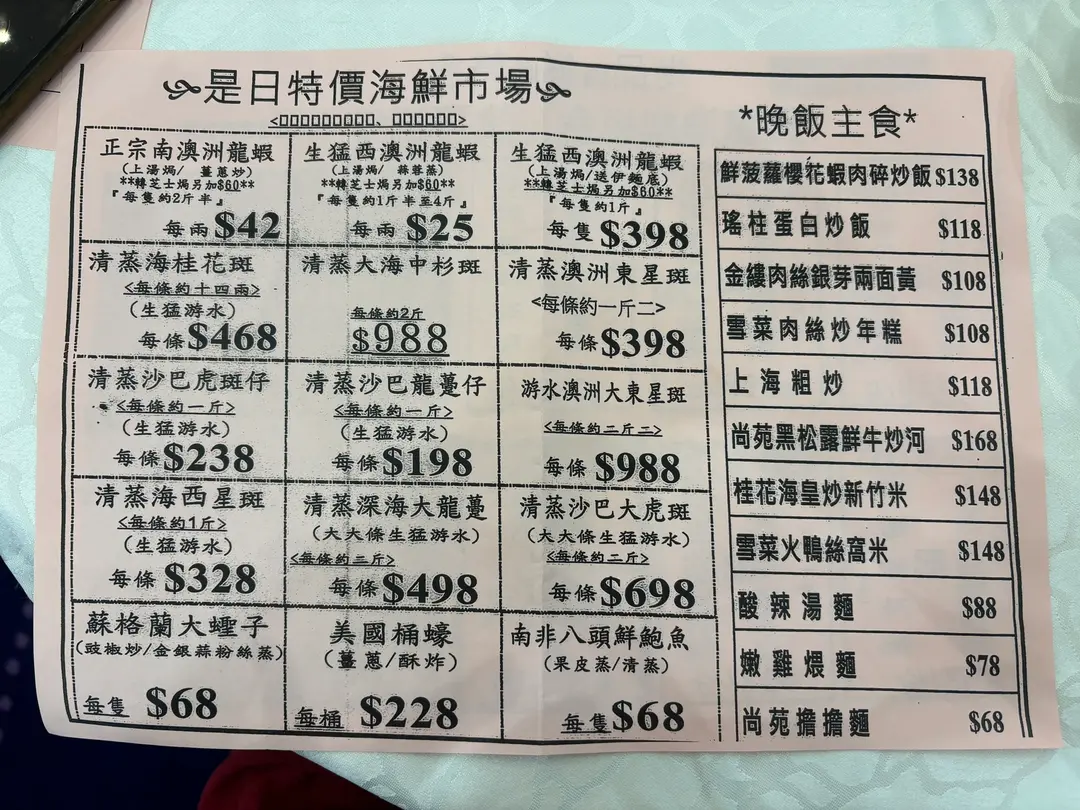 是日特價海鮮市場
<▯▯▯▯▯▯▯▯▯、▯▯▯▯▯▯>
正宗南澳洲龍蝦
(上湯焗/ 薑蔥炒)
**轉芝士焗另加$60**
『每隻約2斤半』
每兩 $42
生猛西澳洲龍蝦
(上湯焗/ 蒜蓉蒸)
**轉芝士焗另加$60**
『每隻約1斤半至4斤』
每兩 $25
生猛西澳洲龍蝦
(上湯焗/送伊麵底)
**轉芝士焗另加$60**
『每隻約1斤』
每隻 $398
清蒸海桂花斑
<每條約十四兩>
(生猛游水)
每條$468
清蒸大海中杉斑
每條約2斤
$988
清蒸澳洲東星斑
<每條約一斤二>
每條$398
清蒸沙巴虎斑仔
<每條約一斤>
(生猛游水)
每條$238
清蒸沙巴龍躉仔
<每條約一斤>
(生猛游水)
每條$198
游水澳洲大東星斑
<每條約二斤二>
每條$988
清蒸海西星斑
<每條約1斤>
(生猛游水)
每條$328
清蒸深海大龍躉
(大大條生猛游水)
<每條約三斤>
每條$498
清蒸沙巴大虎斑
(大大條生猛游水)
<每條約二斤>
每條$698
蘇格蘭大蟶子
(豉椒炒/金銀蒜粉絲蒸)
每隻 $68
美國桶蠔
(薑蔥/酥炸)
每桶 $228
南非八頭鮮鮑魚
(果皮蒸/清蒸)
每隻$68
*晚飯主食*
鮮菠蘿櫻花蝦肉碎炒飯$138
瑤柱蛋白炒飯 $118
金縷肉絲銀芽兩面黃 $108
雪菜肉絲炒年糕 $108
上海粗炒 $118
尚苑黑松露鮮牛炒河 $168
桂花海皇炒新竹米 $148
雪菜火鴨絲窩米 $148
酸辣湯麵 $88
嫩雞煨麵 $78
尚苑擔擔麵 $68